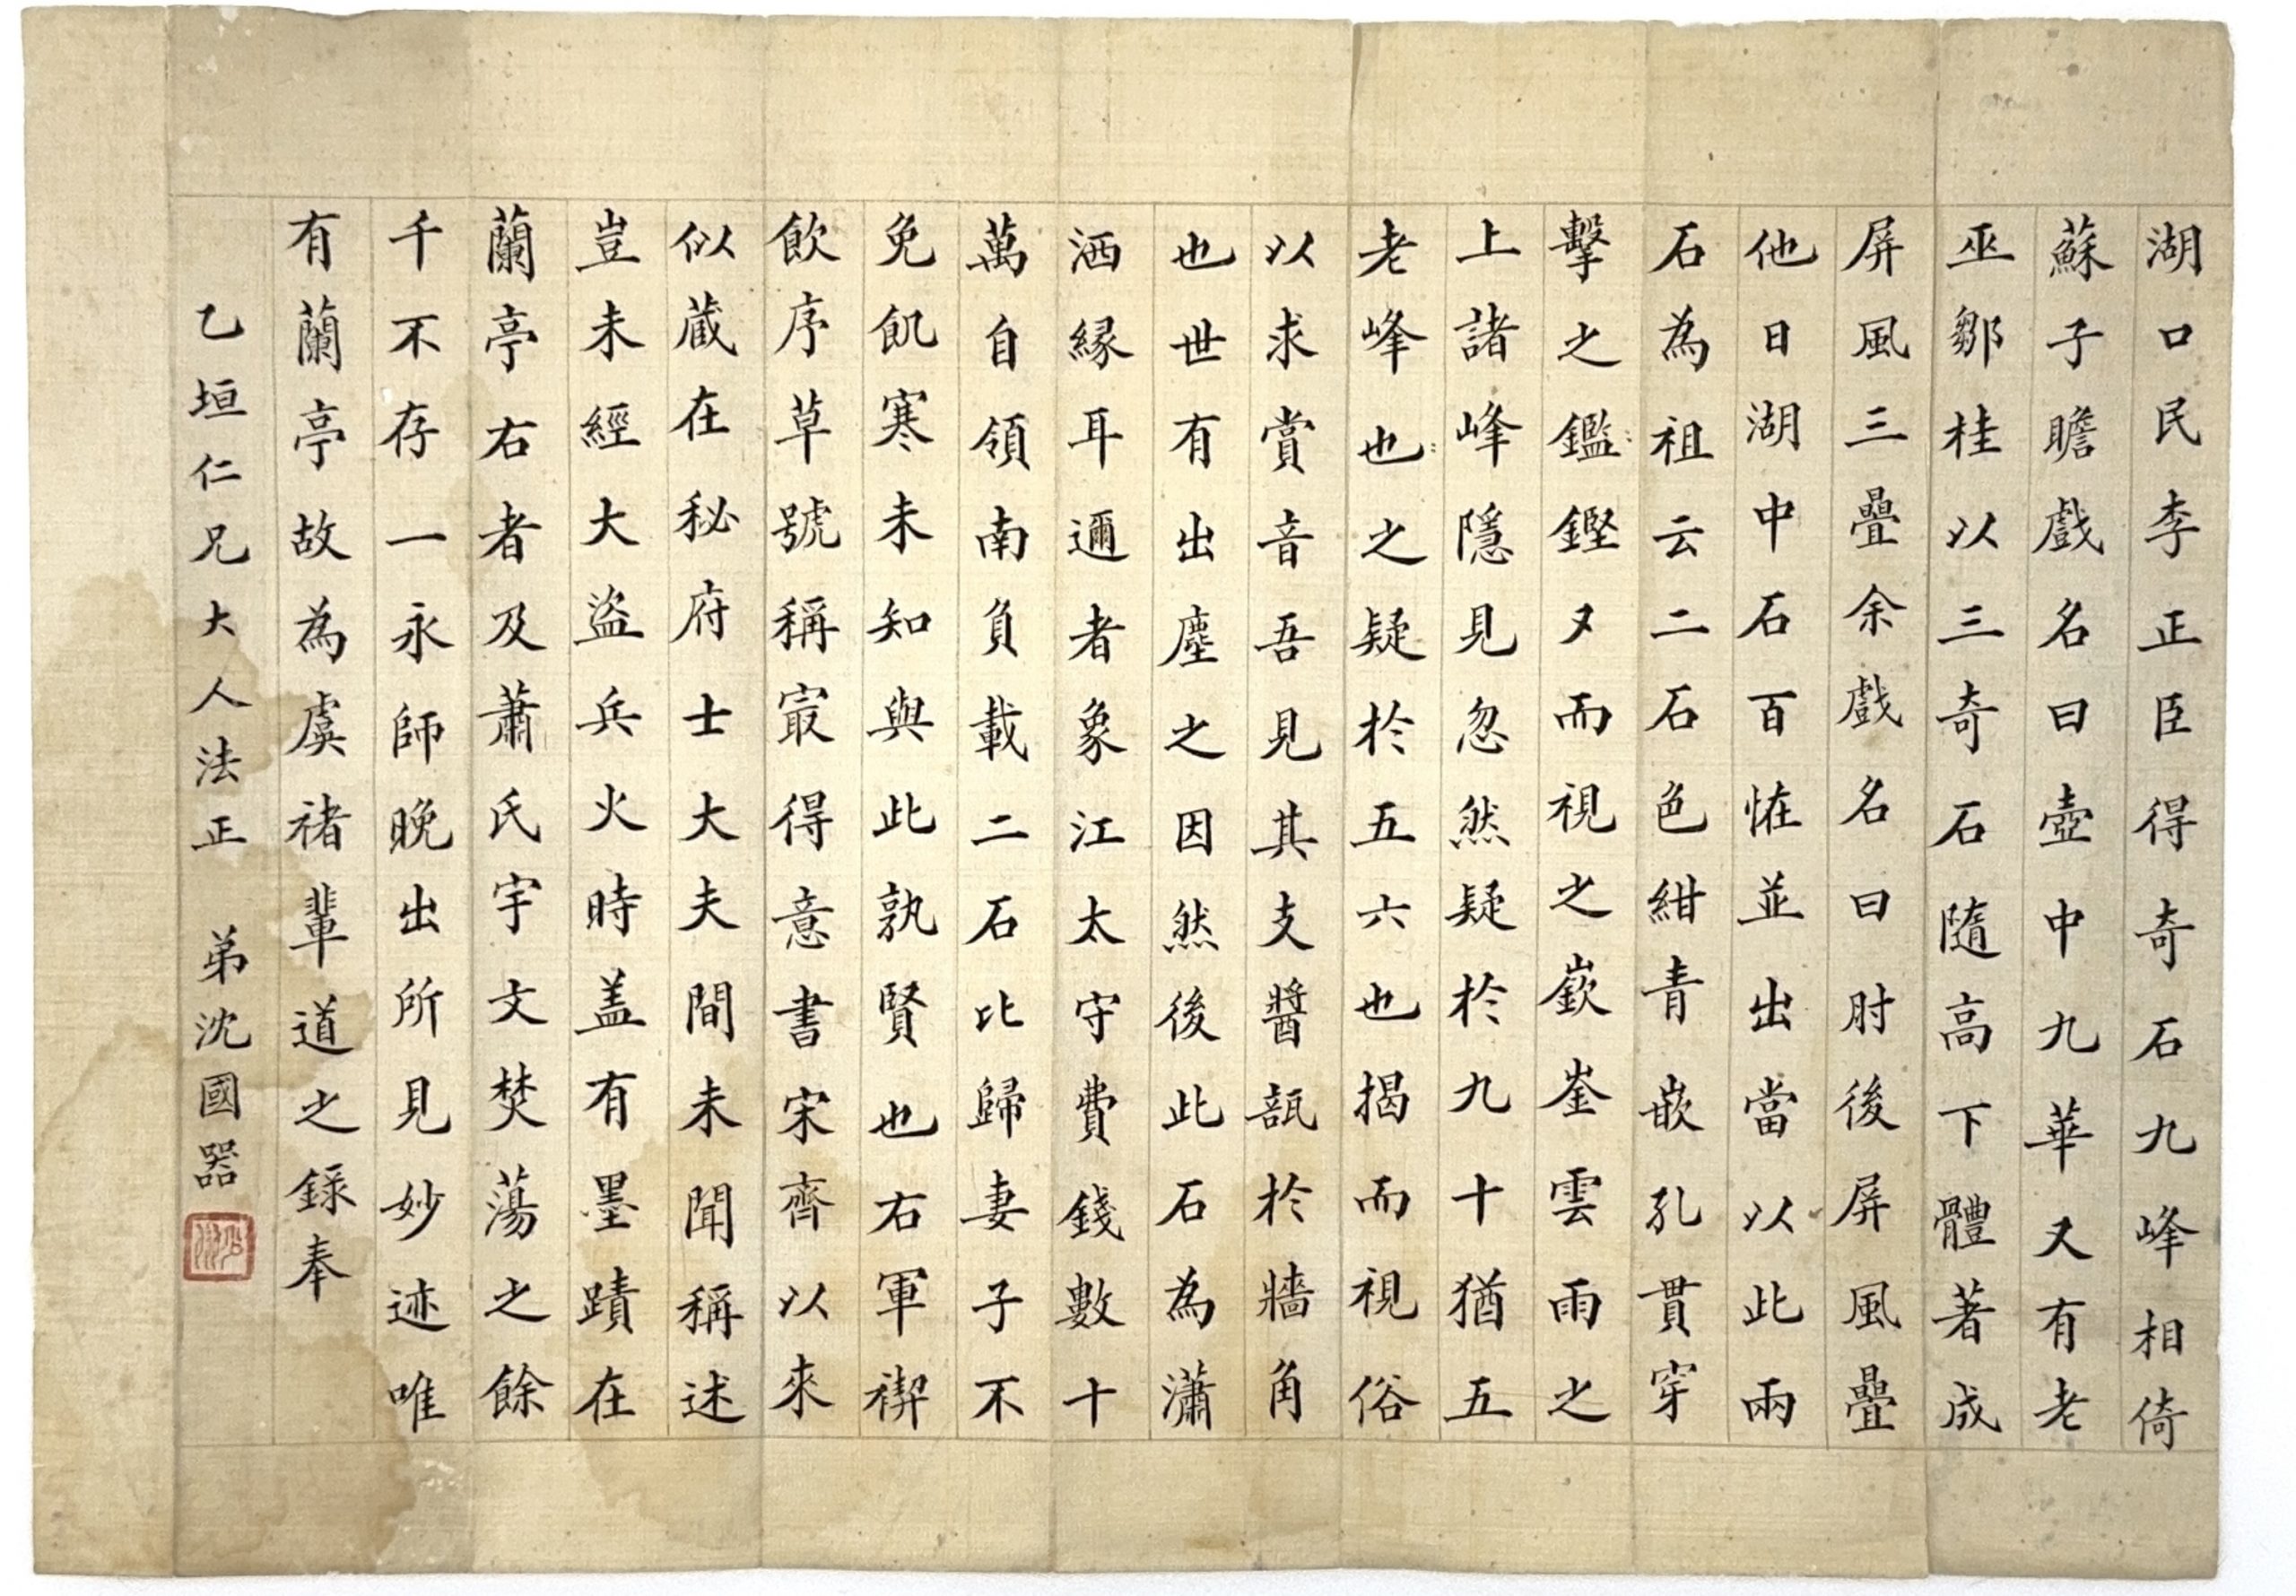 湖口民李正臣得奇石九峰相倚
蘇子瞻戲名曰壺中九華又有老
巫鄒桂以三奇石隨高下體著成
屏風三疊余戲名曰肘後屏風疊
他日湖中石百恠並出當以此兩
石為祖云二石色紺青嵌孔貫穿
擊之鑑鏗夕而視之嶔崟雲雨之
上諸峰隱見忽然疑於九十猶五
老峰也之疑於五六也揭而視俗
以求賞音吾見其支醬瓿於牆角
也世有出塵之因然後此石為瀟
洒緣耳邇者象江太守費錢數十
萬自領南負載二石比歸妻子不
免飢寒未知與此孰賢也右軍禊
飲序草號稱㝡得意書宋齊以來
似藏在秘府士大夫間未聞稱述
豈未經大盜兵火時盖有墨蹟在
蘭亭右者及蕭氏宇文焚蕩之餘
千不存一永師晚出所見妙迹唯
有蘭亭故為虞褚輩道之錄奉
乙垣仁兄大人法正 弟沈國器